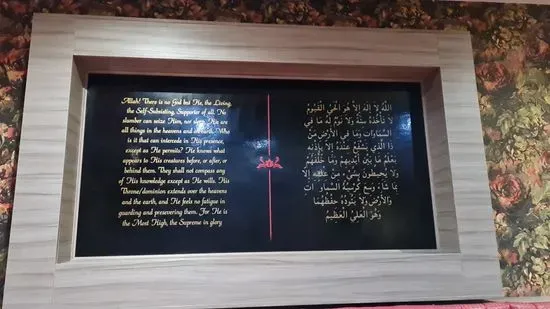 Allah! There is no God but He, the Living,
the Self-Subsisting, Supporter of all. No
slumber can seize Him, nor sleep. His are
all things in the heavens and in earth. Who
is it that can intercede in His presence,
except as He permits? He knows what
appears to His creatures before, or after, or
behind them. They shall not compass any
of His knowledge except as He wills. His
Throne/dominion extends over the heavens
and the earth, and He feels no fatigue in
guarding and preserving them. For He is
the Most High, the Supreme in glory
اَللهُ لَا إِلَهَ إِلَّا هُوَ الْحَيُّ الْقَيُّومُ
لَا تَأْخُذُهُ سِنَةٌ وَلَا نَوْمٌ لَهُ مَا فِي
السَّمَاوَاتِ وَمَا فِي الْأَرْضِ مَنْ
ذَا الَّذِي يَشْفَعُ عِنْدَهُ إِلَّا بِإِذْنِهِ
يَعْلَمُ مَا بَيْنَ أَيْدِيهِمْ وَمَا خَلْفَهُمْ
وَلَا يُحِيطُونَ بِشَيْءٍ مِنْ عِلْمِهِ إِلَّا
بِمَا شَاءَ وَسِعَ كُرْسِيُّهُ السَّمَاوَاتِ
وَالْأَرْضَ وَلَا يَئُودُهُ حِفْظُهُمَا
وَهُوَ الْعَلِيُّ الْعَظِيمُ